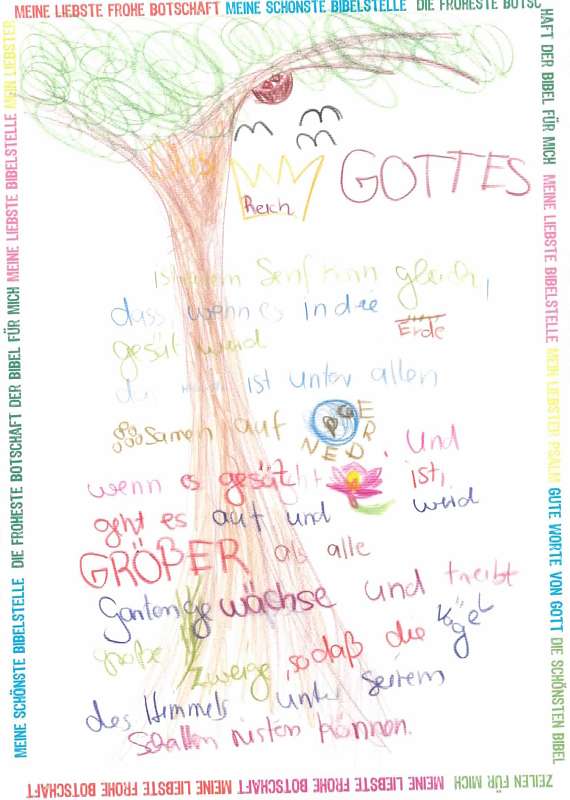 MEINE LIEBSTE FROHE BOTSCHAFT MEINE SCHÖNSTE BIBELSTELLE DIE FROHESTE BOTSC
HAFT DER BIBEL FÜR MICH MEINE LIEBSTE BIBELSTELLE MEIN LIEBSTER PSALM GUTE WORTE VON GOTT DIE SCHÖNSTEN BIBEL
ZEILEN FÜR MICH MEINE LIEBSTE FROHE BOTSCHAFT MEINE LIEBSTE FROHE BOTSCHAFT MEINE LIEBSTE FROHE BOTSCHAFT
MEINE SCHÖNSTE BIBELSTELLE DIE FROHESTE BOTSCHAFT DER BIBEL FÜR MICH MEINE LIEBSTE BIBELSTELLE MEIN LIEBSTER
Das
Reich GOTTES
ist einem Senfkorn gleich,
dass, wenn es in die
Erde
gesät wird
ist unter allen
Samen auf
DER
ERDEN, und
wenn es gesät ist,
geht es auf und wird
GRÖßER als alle
Gartengewächse und treibt
große Zweige, sodaß die Vögel
des Himmels unter seinem
Schatten nisten können.